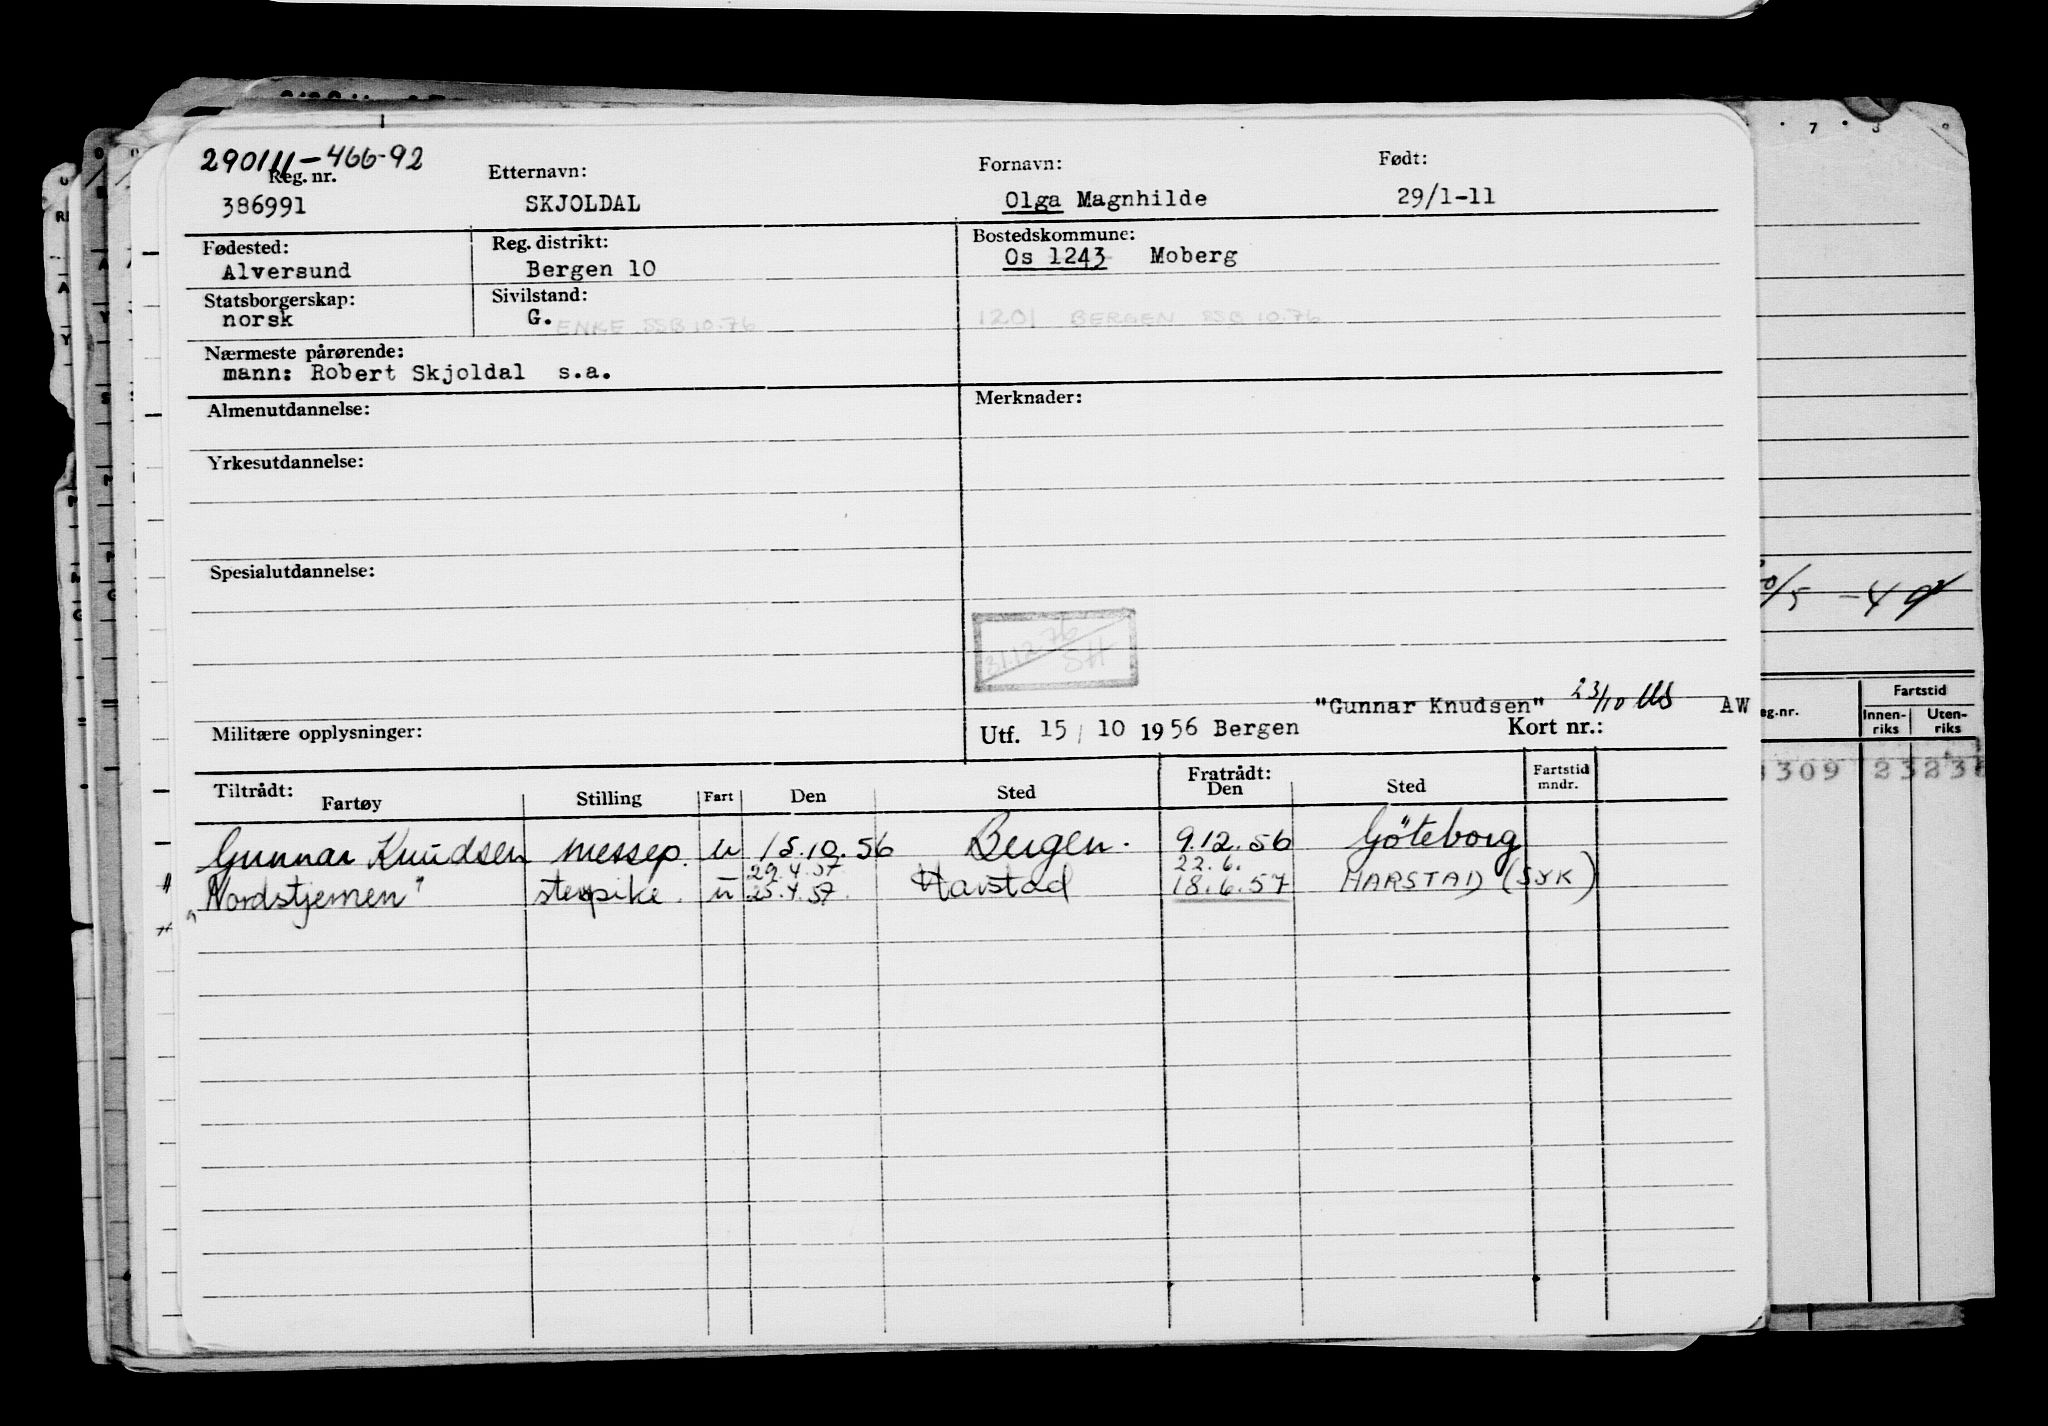 290111-466-92
Reg. nr. Etternavn: Fornavn: Født:
386991 SKJOLDAL Olga Magnhilde 29/1-11
Fødested: Reg. distrikt: Bostedskommune:
Alversund Bergen 10 Os 1243 Moberg
Statsborgerskap: Sivilstand:
norsk G. ENKE SSB 10.76 1201 BERGEN SSB 10.76
Nærmeste pårørende:
mann: Robert Skjoldal s.a.
Almenutdannelse: Merknader:
Yrkesutdannelse:
Spesialutdannelse:
31.12.76
SH
"Gunnar Knudsen" 23/10 AW
Militære opplysninger: Utf. 15/10 1956 Bergen Kort nr.:
Tiltrådt: Fratrådt:
Fartøy Stilling Fart Den Sted Den Sted Fartstid mndr.
Gunnar Knudsen messep. u 15.10.56 Bergen. 9.12.56 Göteborg
29.4.57 22.6.
"Nordstjernen" u 25.4.57. Harstad 18.6.57 HARSTAD (SYK)
7 8 9
20/5 -49
eg.nr. Fartstid
Innen-riks Uten-riks
309 23236